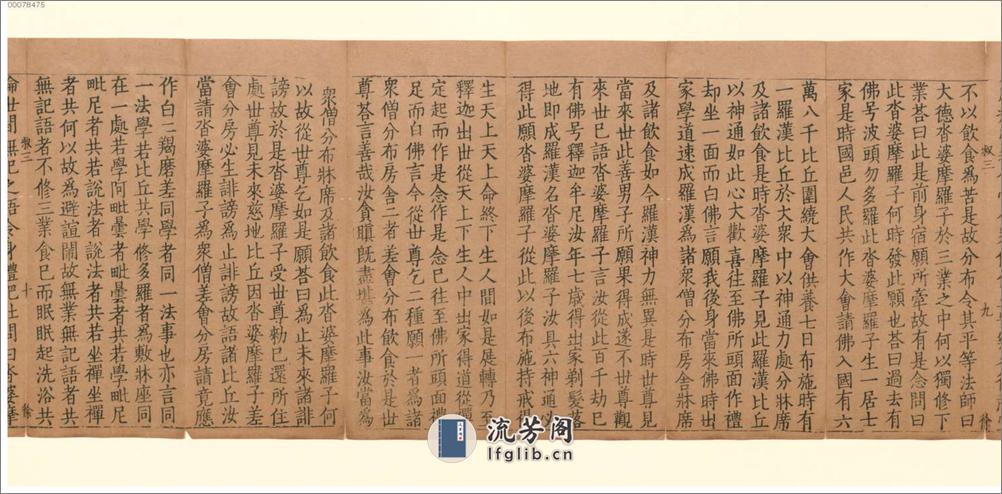 00078475
不以飲食為苦是故分布令其平等法師曰
大德沓婆摩羅子於三業之中何以獨修下
業荅曰此是前身宿願所牽故有是念問曰
此沓婆摩羅子何時發此願也荅曰過去有
佛号波頭勿多羅此沓婆摩羅子生一居士
家是時國邑人民共作大會請佛入國有六
萬八千比丘圍繞大會供養七日布施時有
一羅漢比丘於大衆中以神通力處分牀席
及諸飲食是時沓婆摩羅子見此羅漢比丘
以神通如此心大歡喜往至佛所頭面作禮
却坐一面而白佛言願我後身當來佛時出
家學道速成羅漢為諸衆僧分布房舍牀席
及諸飲食如今羅漢神力無異是時世尊見
當來世此善男子所願果得成遂不世尊觀
來世已語沓婆摩羅子言汝從此百千劫已
有佛号釋迦牟尼汝年七歳得出家剃髮落
地即成羅漢名沓婆摩羅子汝具六神通必
得此願沓婆摩羅子從此以後布施持戒得
生天上天上命終下生人間如是展轉乃至
釋迦出世從天上下生人中出家得道從禪
定起而作是念作是念已往至佛所頭面禮
足而白佛言今從世尊乞二種願一者為諸
衆僧分布房舍二者差會分布飲食於是世
尊荅言善哉汝貪瞋旣盡堪為此事汝當為
衆僧分布牀席及諸飲食此沓婆摩羅子何
以故從世尊乞如是願荅曰為止未來諸誹
謗故於是沓婆摩羅子受世尊勑已還所住
處世尊見未來慈地比丘因沓婆摩羅子差
會分房必生誹謗為止誹謗故語諸比丘汝
當請沓婆摩羅子為衆僧差會分房請竟應
作白二羯磨差同學者同一法事也亦言同
一法學若比丘共學修多羅者為敷牀座同
在一處若學阿毗曇者毗曇者共若學毗尼
毗尼者共若說法者說法者共若坐禪坐禪
者共何以故為避諠閙故無業無記語者共
無記語者不修三業食已而眠眠起洗浴共
流芳阁
lfglib.cn